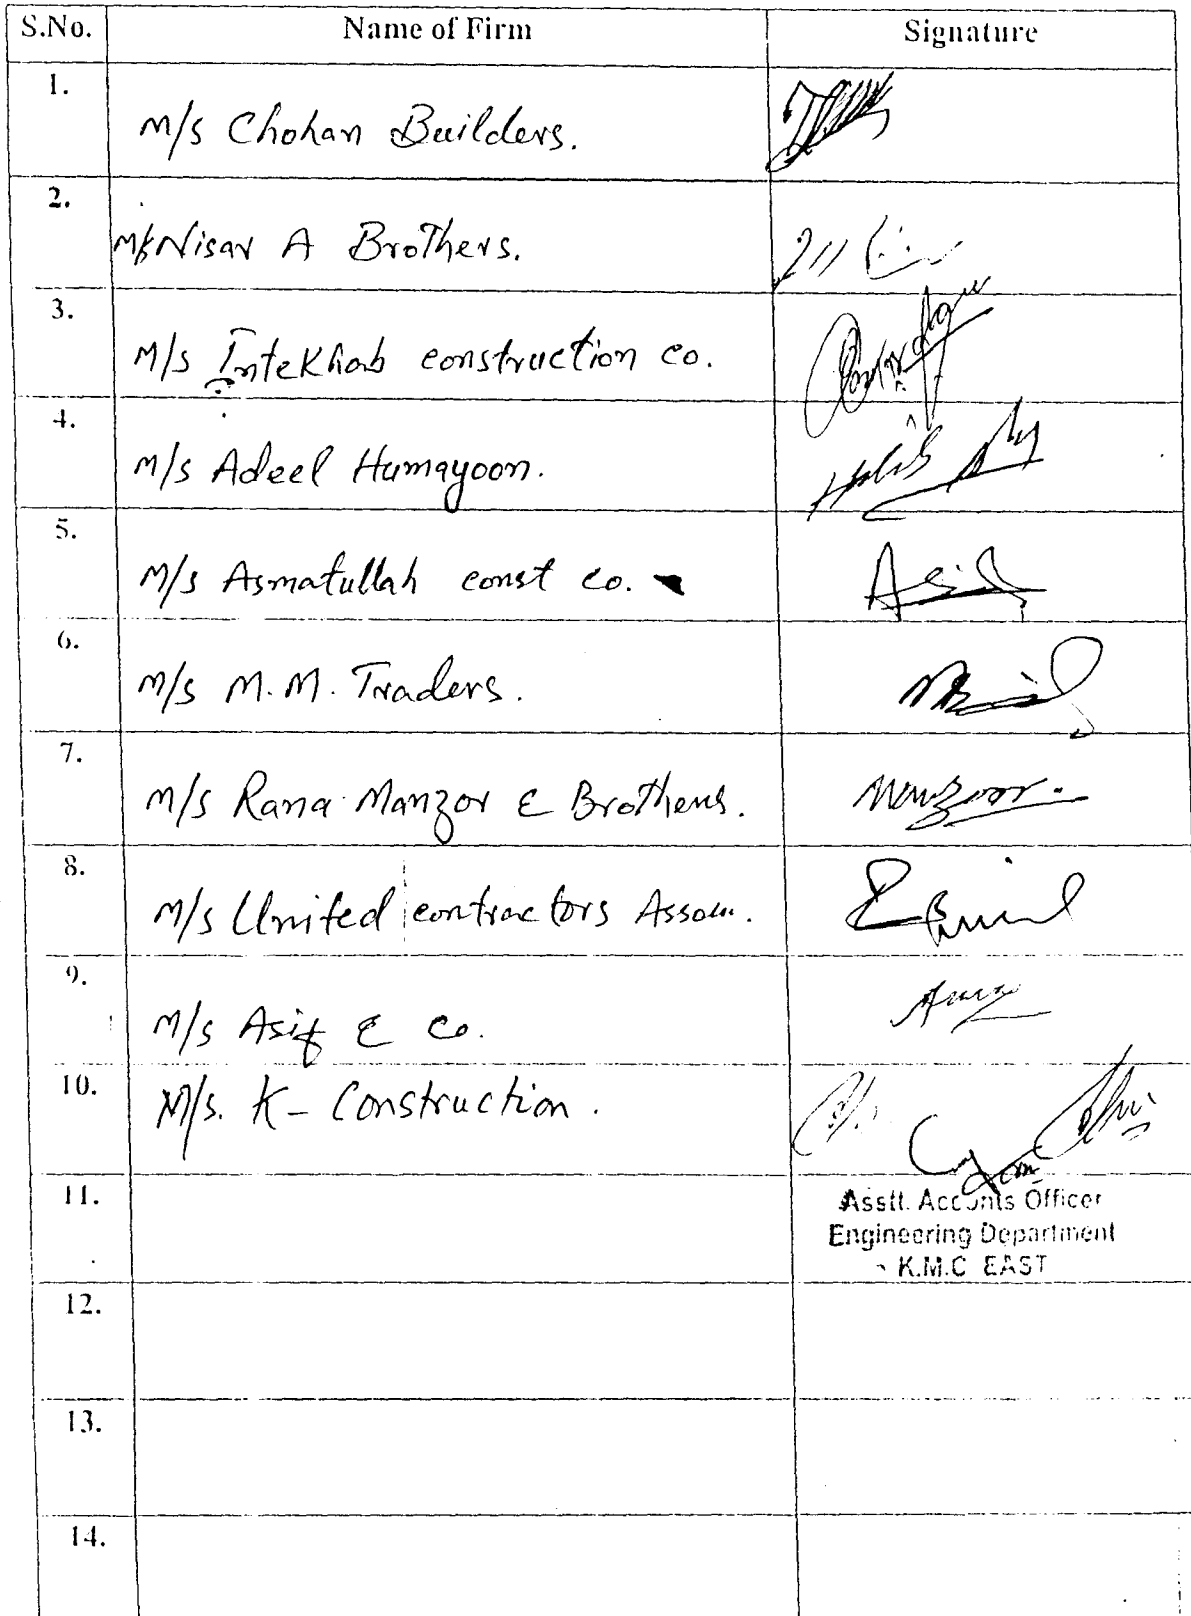 S.No. Name of Firm Signature
1. M/s Chohan Builders.
2. M/s Nisar A Brothers.
3. M/s Intekhab construction co.
4. M/s Adeel Humayoon.
5. M/s Asmatullah const co.
6. M/s M.M. Traders.
7. M/s Rana Manzor & Brothers. Manzoor.
8. M/s United contractors Assou.
9. M/s Asif & Co.
10. M/s. K- Construction.
11. Asstt. Accounts Officer
Engineering Department
K.M.C EAST
12.
13.
14.